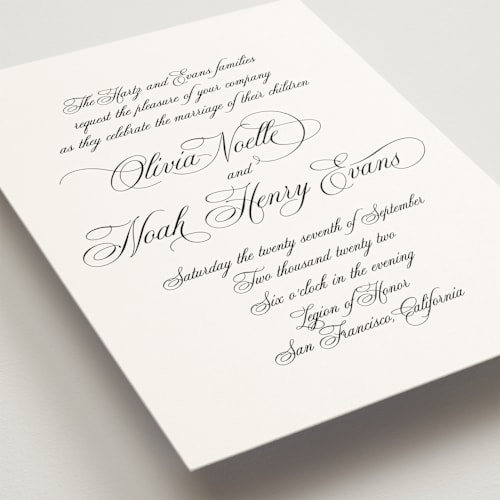 The Hartz and Evans families
request the pleasure of your company
as they celebrate the marriage of their children
Olivia Noelle
and
Noah Henry Evans
Saturday the twenty seventh of September
Two thousand twenty two
Six o'clock in the evening
Legion of Honor
San Francisco, California